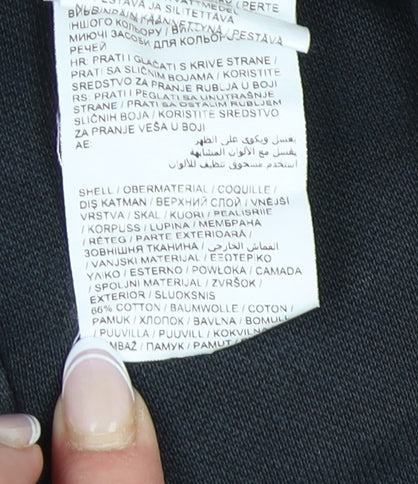 PESTAVA JA SILITETTAVA
ІНШОГО КОЛЬОРУ / 
МИЮЧІ ЗАСОБИ ДЛЯ КОЛЬОР
РЕЧЕЙ
HR: PRATI I GLAČATI S KRIVE STRANE /
PRATI SA SLIČNIM BOJAMA / KORISTITE
SREDSTVO ZA PRANJE RUBLJA U BOJI
RS: PRATI I PEGLATI SA UNUTRAŠNJE
STRANE / PRATI SA OSTALIM RUBLJEM
SLIČNIH BOJA / KORISTITE SREDSTVO
ZA PRANJE VEŠA U BOJI
AE: يغسل ويكوى على الظهر
يغسل مع الألوان المشابهة
استخدم مسحوق تنظيف للألوان
SHELL / OBERMATERIAL / COQUILLE /
DIŞ KATMAN / ВЕРХНИЙ СЛОЙ / VNĚJŠÍ
VRSTVA / SKAL / KUORI / PEALISRIIE
/ KORPUSS / LUPINA / МЕМБРАНА
/ RÉTEG / PARTE EXTERIOARĂ /
ЗОВНІШНЯ ТКАНИНА / القماش الخارجي
/ VANJSKI MATERIJAL / ΕΞΩΤΕΡΙΚΟ
ΥΛΙΚΟ / ESTERNO / POWŁOKA / CAMADA
/ SPOLJNI MATERIJAL / ZVRŠOK /
EXTERIOR / SLUOKSNIS
66% COTTON / BAUMWOLLE / COTON /
PAMUK / ХЛОПОК / BAVLNA / BOMULL
/ PUUVILLA / PUUVILL / KOKVILNA
MBAŽ / ПАМУК / PAMUT